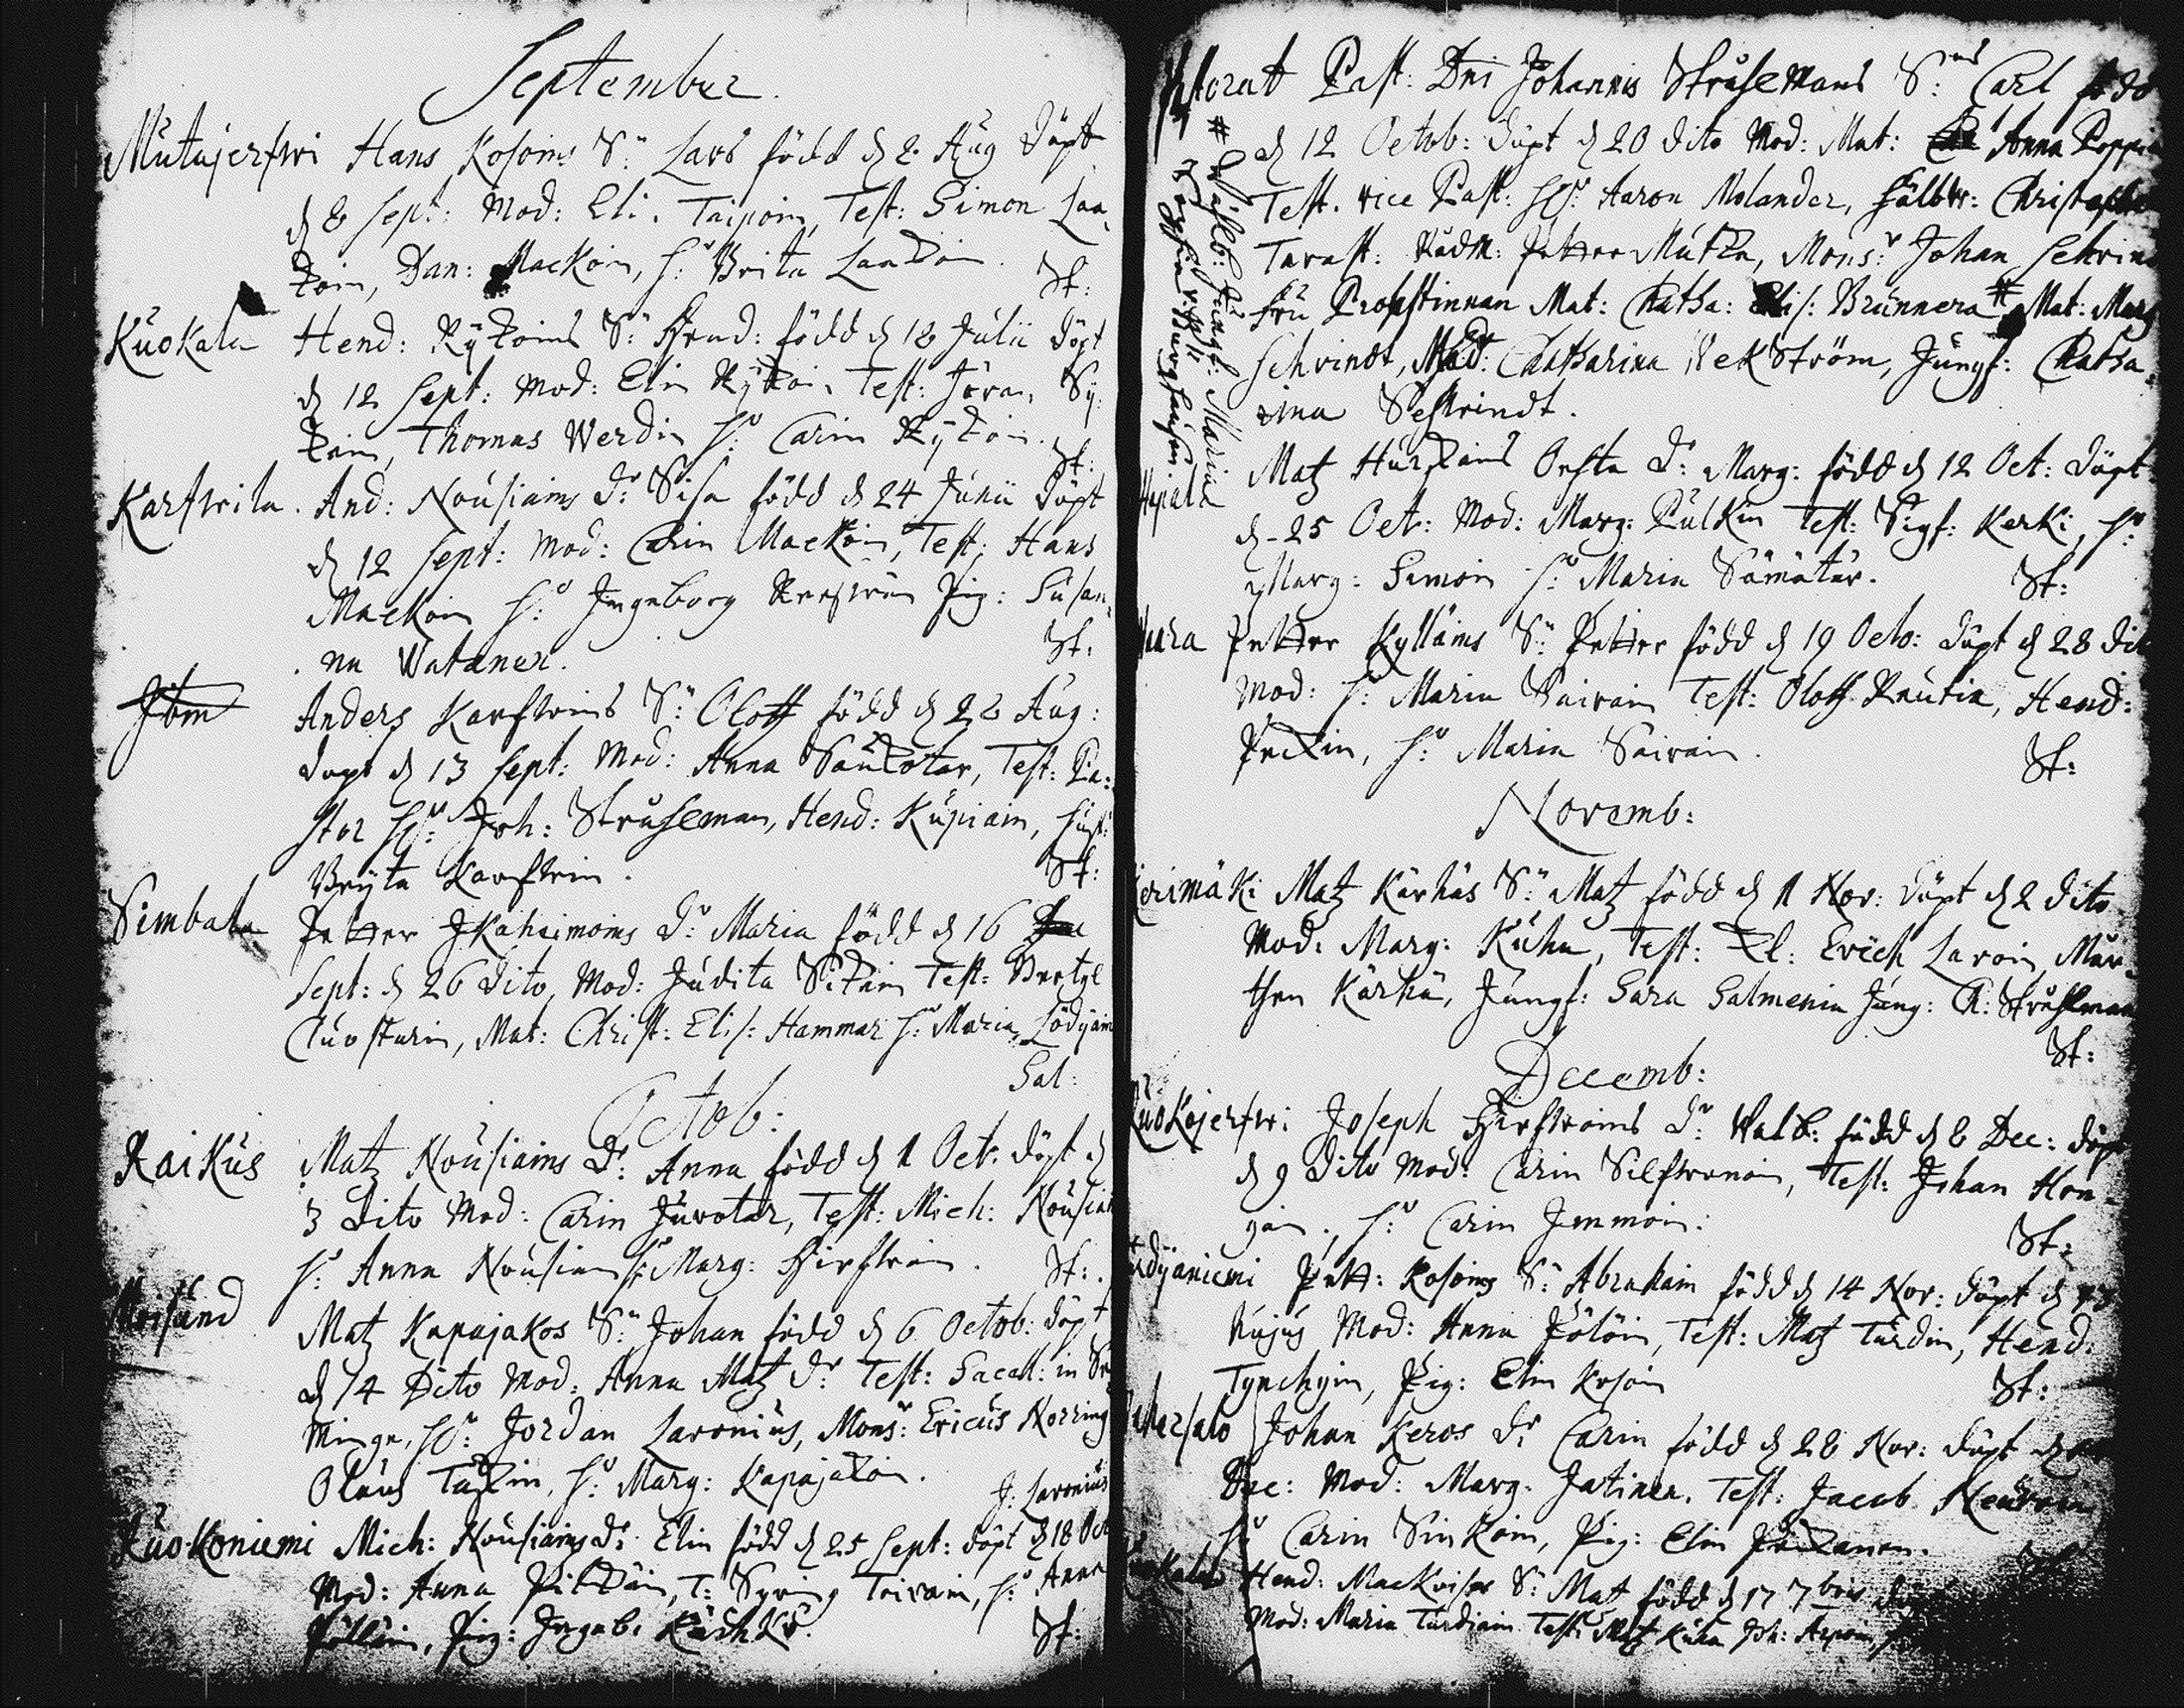 September.
Mutajerfwi Hans Kosoins S: Lars född d 2 Aug döpt
d 8 Sept: Mod: Eli. Taipoin, Test: Simon Laa,
koin, Dan: Mackoin, h: Brita Laakoin. St:
Kuokala Hend: Rykoins S: Hend: född d 18 Julii döpt
d 12 Sept: Mod: Elin Rykoin Test: Jöran Sy,
koin, Thomas Werdin h: Carin Rykoin. St:
Karfwila. And: Nousiains dr: Sisa född d 24 Junii döpt
d 12 Sept: Mod: Carin Mackoin, Test: Hans
Mackoin h: Ingeborg Pig: Susan,
na Watanen. St:
Ibm Anders Karfwins S: Oloff född d 28 Aug:
döpt d 13 Sept: Mod: Anna Saukotar, Test: Pa:
stor H: Joh: Struseman, Hend: Kupiain, hust:
Bryta Karfwin. St:
Simbala Petter Ikaheimoins dr: Maria född d 16
Sept: d 26 dito, Mod: Judita Sikain Test: Bertyl
Cluosturin, Mat: Christ: Elis: Hammar h: Maria Lödyäin
Sal:
Octob:
Raikus Matz Nousiains Dr: Anna född d 1 Oct. döpt d
3 dito Mod: Carin Juvotar, Test: Mich: Nousiain
h: Anna Nousiain h: Marg: Hirfwoin. St:
Moisund Matz Kapajakos S: Johan född d 6 Octob: döpt
d 14 Dito Mod: Anna Matz dr Test: Sacell: in
Minge, H: Jordan Lavonius, Mons: Ericus Norring
Olaus h: Marg: Kapajakoin. J: Lavonius
Kuokoniemi Mich: Nousiains dr: Elin född d 25 Sept: döpt d 18 Oct
Mod: Anna T: Toivain, h: Anna
Pöllöin, Pig: Ingeb: St:
Past: Dni Johannis Strusemans S: Carl född
d 12 Octob: döpt d 20 dito Mod: Mat: Anna Poppi
Test. vice Past: H: Aaron Molander, Christopher
Tavast: Rådm: Petter Mutka, Mons: Johan Schrin
Fru Probstinnan Mat: Chatha: Elis: Brunnera # Mat: Marg
Schrindt, Mad: Chatharina Ström, Jungf: Chatha,
rina Schrindt.
# Jungf: Maria
Matz dr: Marg: född d 12 Oct: döpt
d 25 Oct: Mod: Marg: Pulkin Test: Sigf: Kerki, h:
Marg: Simoin h: Maria Sämötär. St:
Petter Kylläins S: Petter född d 19 Octo: döpt d 28 dito
Mod: h: Maria Test: Oloff Rautia, Hend:
Pekin, h: Maria Saivain. St:
Novemb:
Kerimäki Matz Kärhäs S: Matz född d 1 Nov: döpt d 2 dito
Mod: Marg: Kuha, Test: Kl: Erich Lavoin, Mår,
then Kärhä, Jungf: Sara Salmenia Jung: A: Struseman
St:
Decemb:
Kuokojerfwi Joseph Hirfwoins dr: Walb: född d 8 Dec: döpt
d 9 dito Mod: Carin Silfwonoin, Test: Johan Hon,
gain, h: Carin Immoin. St:
Pett: Kosoins S: Abraham född d 14 Nov: döpt d
hujus Mod: Anna Pölöin, Test: Matz Turdin, Hend:
Tynckyin, Pig: Elin Kosoin St:
Johan Keros dr: Carin född d 28 Nov: döpt d
Dec: Mod: Marg: Jatinen. Test: Jacob
h: Carin Sinkoin, Pig: Elin
Hend: S: Mat född d 17 7bris
Mod: Maria Turdiain Test: Matz Kuha Joh: